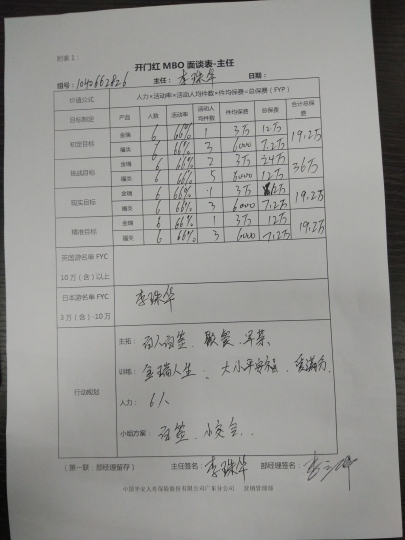 附表 1：
开门红 MBO 面谈表-主任
组号：1040662826 主任：李珠华 日期：
价值公式 人力×活动率×活动人均件数×件均保费=总保费（FYP）
目标制定 产品 人数 活动率 活动人均件数 件均保费 总保费 合计总保费
初定目标 金瑞 6 66% 1 3万 12万 19.2万
福关 6 66% 3 6000 7.2万
挑战目标 金瑞 6 66% 2 3万 24万 36万
福关 6 66% 5 6000 12万
现实目标 金瑞 6 66% 1 3万 19.2万
福关 6 66% 3 6000 7.2万
精准目标 金瑞 6 66% 1 3万 12万 19.2万
福关 6 66% 3 6000 7.2万
英国游名单 FYC
10 万（含）以上
日本游名单 FYC
3 万（含）-10 万
李珠华
行动规划
主拓：
训练：金瑞人生、大小平安福
人力：6人
小组方案：
（第一联：部经理留存） 主任签名：李珠华 部经理签名：
中国平安人寿保险股份有限公司广东分公司 营销管理部